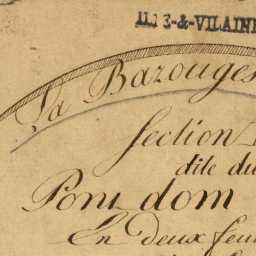 ILLE-&-VILAINE
La Bazouges
Section
dite du
Pont dom
En deux feui